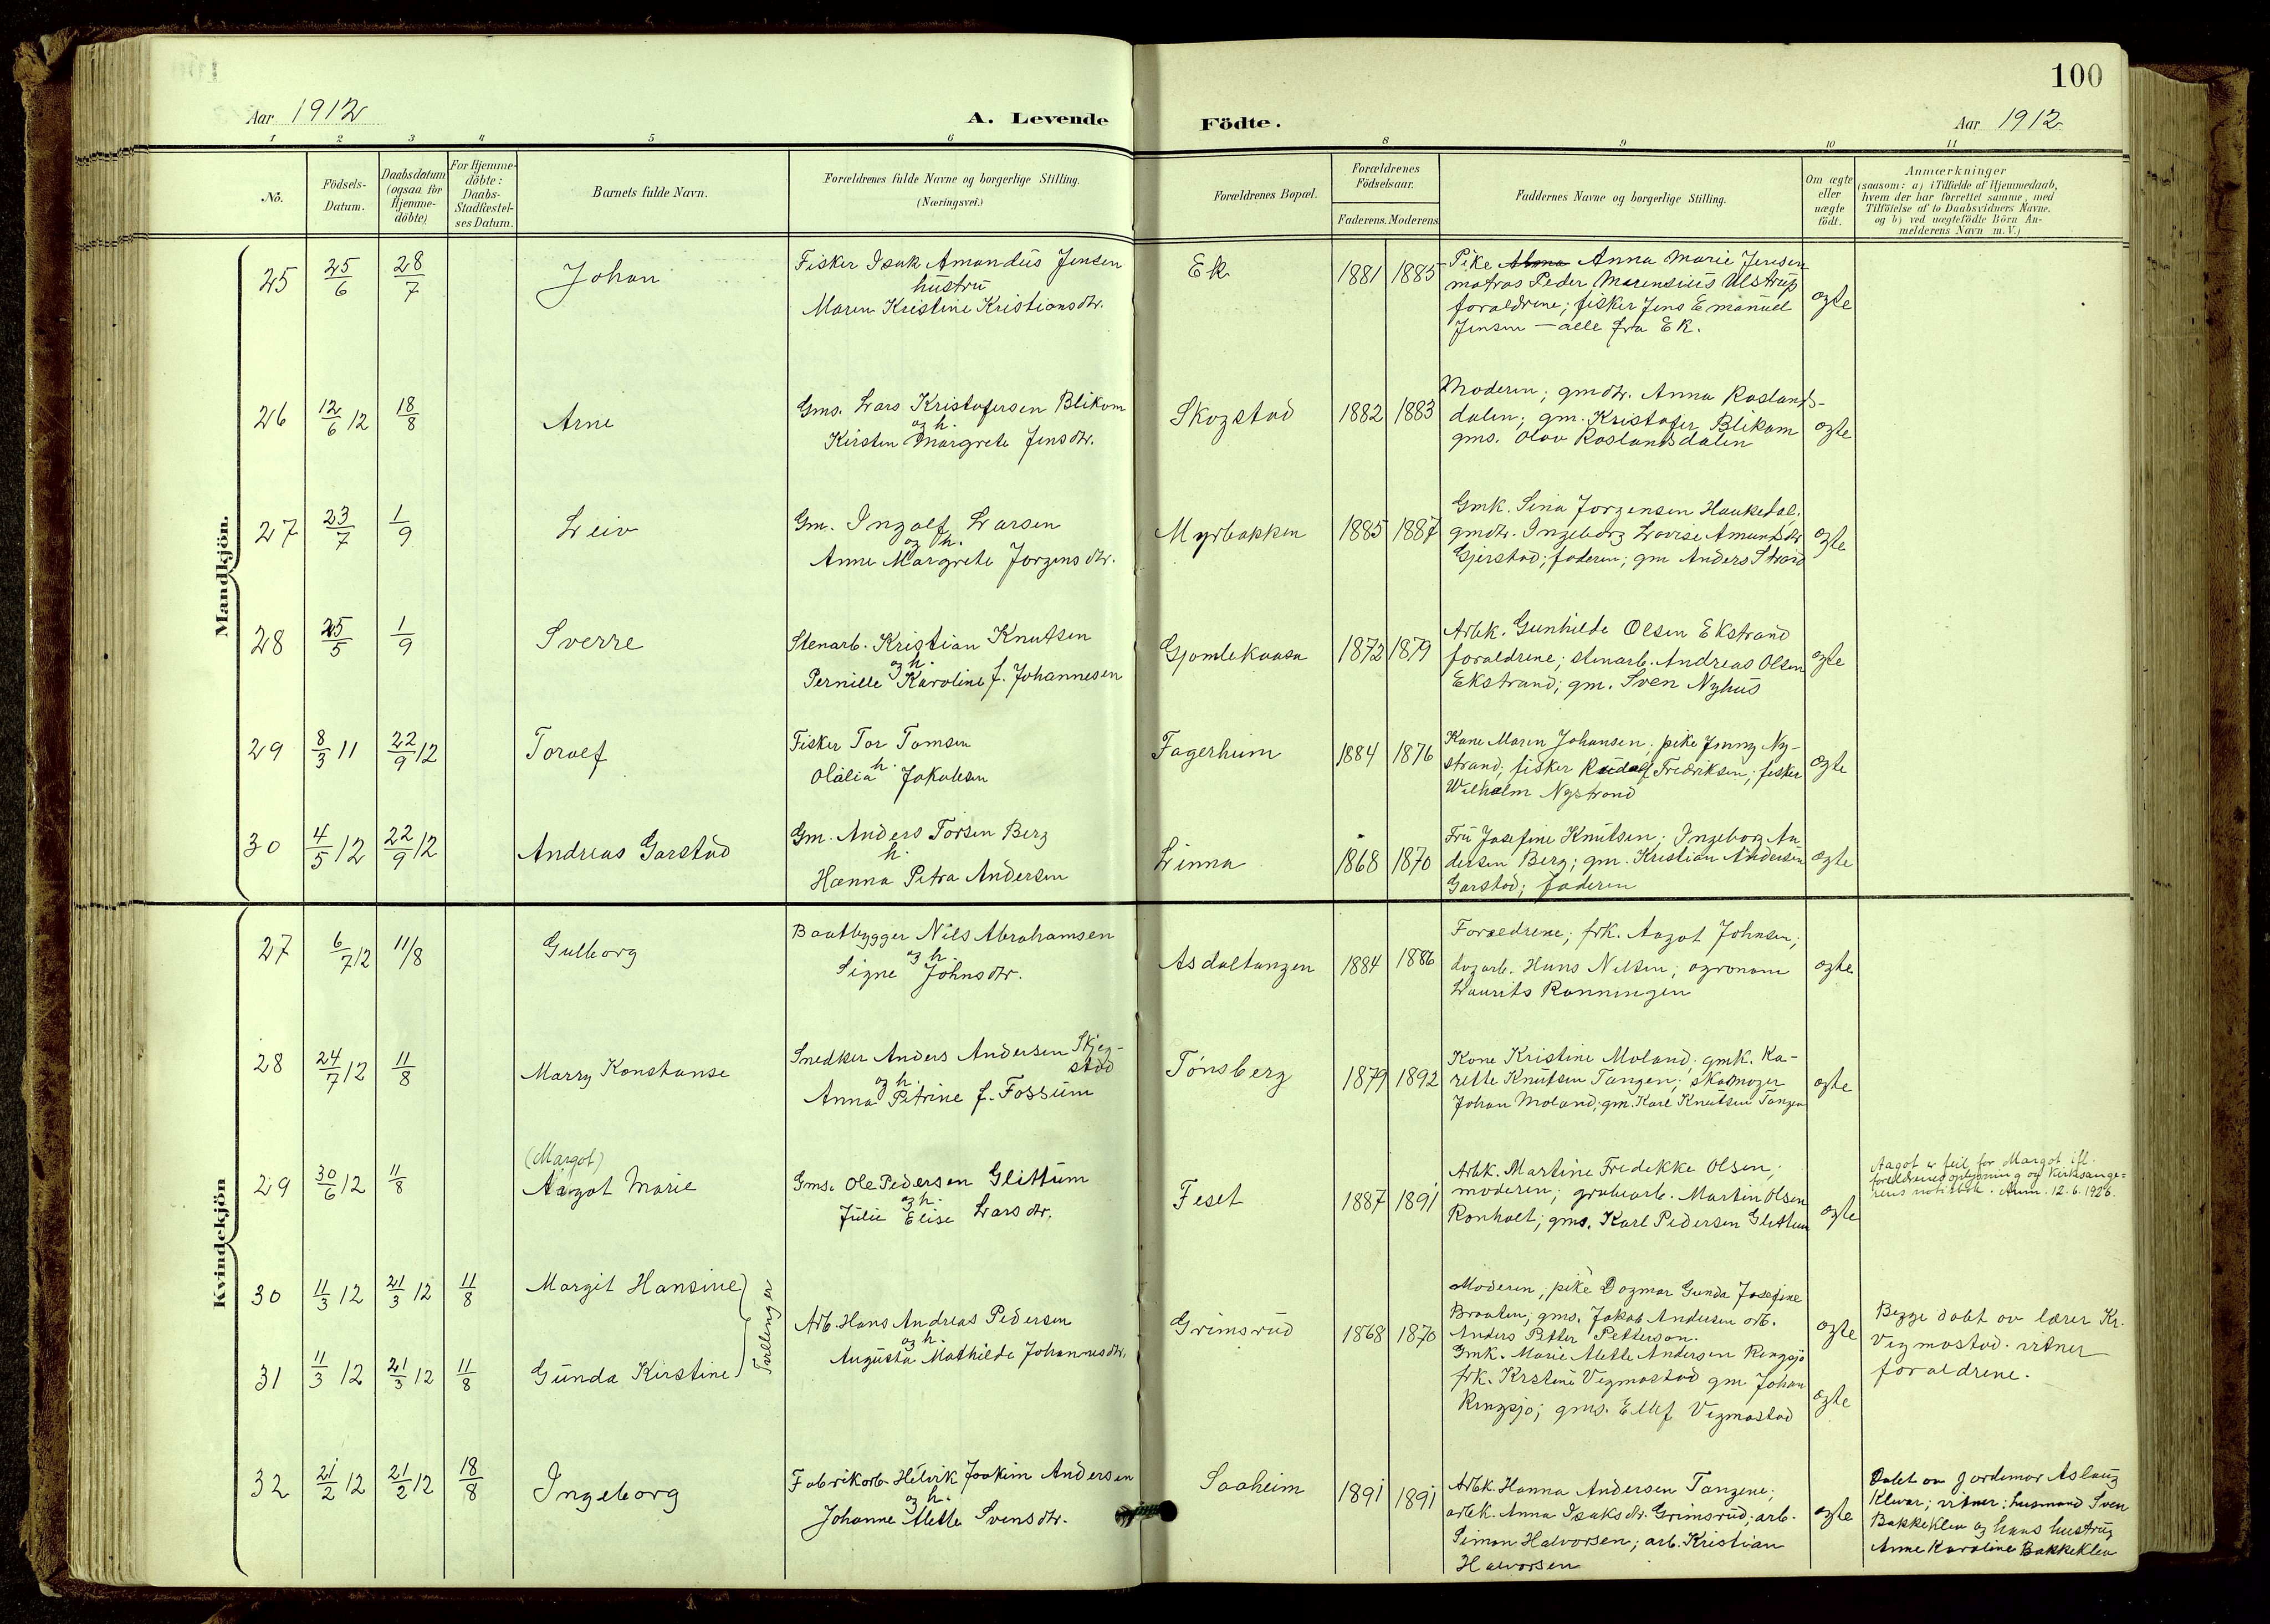 100
Aar 1912
A. Levende
Födte.
Aar 1912
1 2 3 4 5 6 8 9 10 11
No.
Födsels-
Datum.
Daabsdatum
(ogsaa for
Hjemme-
döbte)
For Hjemme-
döbte:
Daabs-
Stadfæstel-
ses Datum.
Barnets fulde Navn.
Forældrenes fulde Navne og borgerlige Stilling.
(Næringsvei.)
Forældrenes Bopæl.
Forældrenes
Födselsaar.
Faderens. Moderens
Faddernes Navne og borgerlige Stilling.
Om ægte
eller
uægte
födt.
Anmærkninger
(saasom: a) i Tilfælde af Hjemmedaab,
hvem der har forrettet samme, med
Tilföielse af to Daabsvidners Navne.
og b) ved uægtefödte Börn An-
melderens Navn m. V.)
Mandkjön.
25 25/6 28/7 Johan
Fisker Isak Amandus Jensen
hustru
Maren Kristine Kristiansdtr.
Ek 1881 1885
Pike Anna Marie Jensen
matros Peder Marensius Ulstrup
foraldrene; fisker Jens Emanuel
Jensen — alle fra Ek.
ægte
26 12/6 12 18/8 Arne
Gms. Lars Kristofersen Blikom
og h.
Kirsten Margrete Jensdtr.
Skogstad 1882 1883
Moderen; gmdtr. Anna Roslands-
dalen; gm. Kristofer Blikom
gms. Olav Roslandsdalen
ægte
27 23/7 1/9 Leiv
Gm. Ingolf Larsen
og h.
Anne Margrete Jorgensdtr.
Myrbakken 1885 1887
Gmk. Sina Jorgensen Haukedal.
gmdtr. Ingeborg Lovise Amundsdtr
Gjerstad; faderen; gm Anders Strand
ægte
28 25/5 1/9 Sverre
Stenarb. Kristian Knutsen
og h.
Pernille Karoline f. Johannesen
Gjomlekaasa 1872 1879
Arbk. Gunhilde Olsen Ekstrand
foraldrene; stenarb. Andreas Olsen
Ekstrand; gm. Sven Nyhus
ægte
29 8/3 11 22/9 12 Toralf
Fisker Tor Tomsen
h.
Olalia Jakobsen
Fagerheim 1884 1876
Kone Maren Johansen; pike Jenny Ny-
strand; fisker Rudolf Fredriksen; fisker
Wilhelm Nystrand
ægte
30 4/5 12 22/9 12 Andreas Garstad
Gm. Anders Torsen Berg
h.
Hanna Petra Andersen
Linna 1868 1870
Fru Josefine Knutsen; Ingeborg An-
dersen Berg; gm. Kristian Andersen
Garstad; faderen
ægte
Kvindekjön
27 6/7 12 11/8 Gulborg
Baatbygger Nils Abrahamsen
og h.
Signe Johnsdtr.
Asdaltangen 1884 1886
Foraeldrene; frk. Aagot Johnsen;
dagarb. Hans Nilsen; agronom
Laurits Ronningen
ægte
28 24/7 12 11/8 Marry Konstanse
Snedker Anders Andersen Skjeg-
stad
og h.
Anna Petrine f. Fossum
Tönsberg 1879 1892
Kone Kristine Moland; gmk. Ka-
rette Knutsen Tangen; skomager
Johan Moland; gm. Karl Knutsen Tangen
ægte
29 30/6 12 11/8
(Margot)
Aagot Marie
Gms. Ole Pedersen Glittum
og h.
Julie Elise Larsdtr.
Feset 1887 1891
Arbk. Martine Fredekke Olsen;
moderen; grubearb. Martin Olsen
Ronholt; gms. Karl Pedersen Glittum
ægte
Aagot er feil for Margot ifl.
foreldrenes oplysning og kirksange-
rens notisbok. Anm. 12.6.1926.
30 11/3 12 21/3 12 11/8 Margit Hansine
31 11/3 12 21/3 12 11/8 Gunda Kirstine
Tvillinger
Arb. Hans Andreas Pedersen
og h.
Augusta Mathilde Johannesdtr.
Grimsrud 1868 1870
Moderen, pike Dagmar Gunda Josefine
Braaten; gms. Jakob Andersen arb.
Anders Petter Petterson.
Gmk. Marie Alette Andersen Ringsjo
frk. Kristine Vigmostad gm. Johan
Ringsjo; gms. Ellef Vigmostad
ægte
ægte
Begge dobt av lærer Kr.
Vigmostad. vitner
foraldrene.
32 21/2 12 21/2 12 18/8 Ingeborg
Fabrikarb. Helvik Joakim Andersen
og h.
Johanne Alette Svensdtr.
Saaheim 1891 1891
Arbk. Hanna Andersen Tangene;
arbk. Anna Isaksdtr. Grimsrud; arb.
Simon Halvorsen; arb. Kristian
Halvorsen
ægte
Dobt av jordemor Aslaug
Klevar; vitner: husmand Sven
Bakkeklev og hans hustru
Anne Karoline Bakkeklev